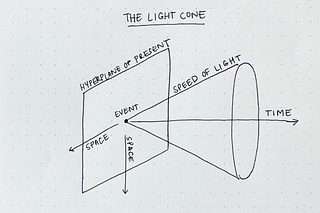 THE LIGHT CONE
HYPERPLANE OF PRESENT
SPEED OF LIGHT
EVENT
TIME
SPACE
SPACE